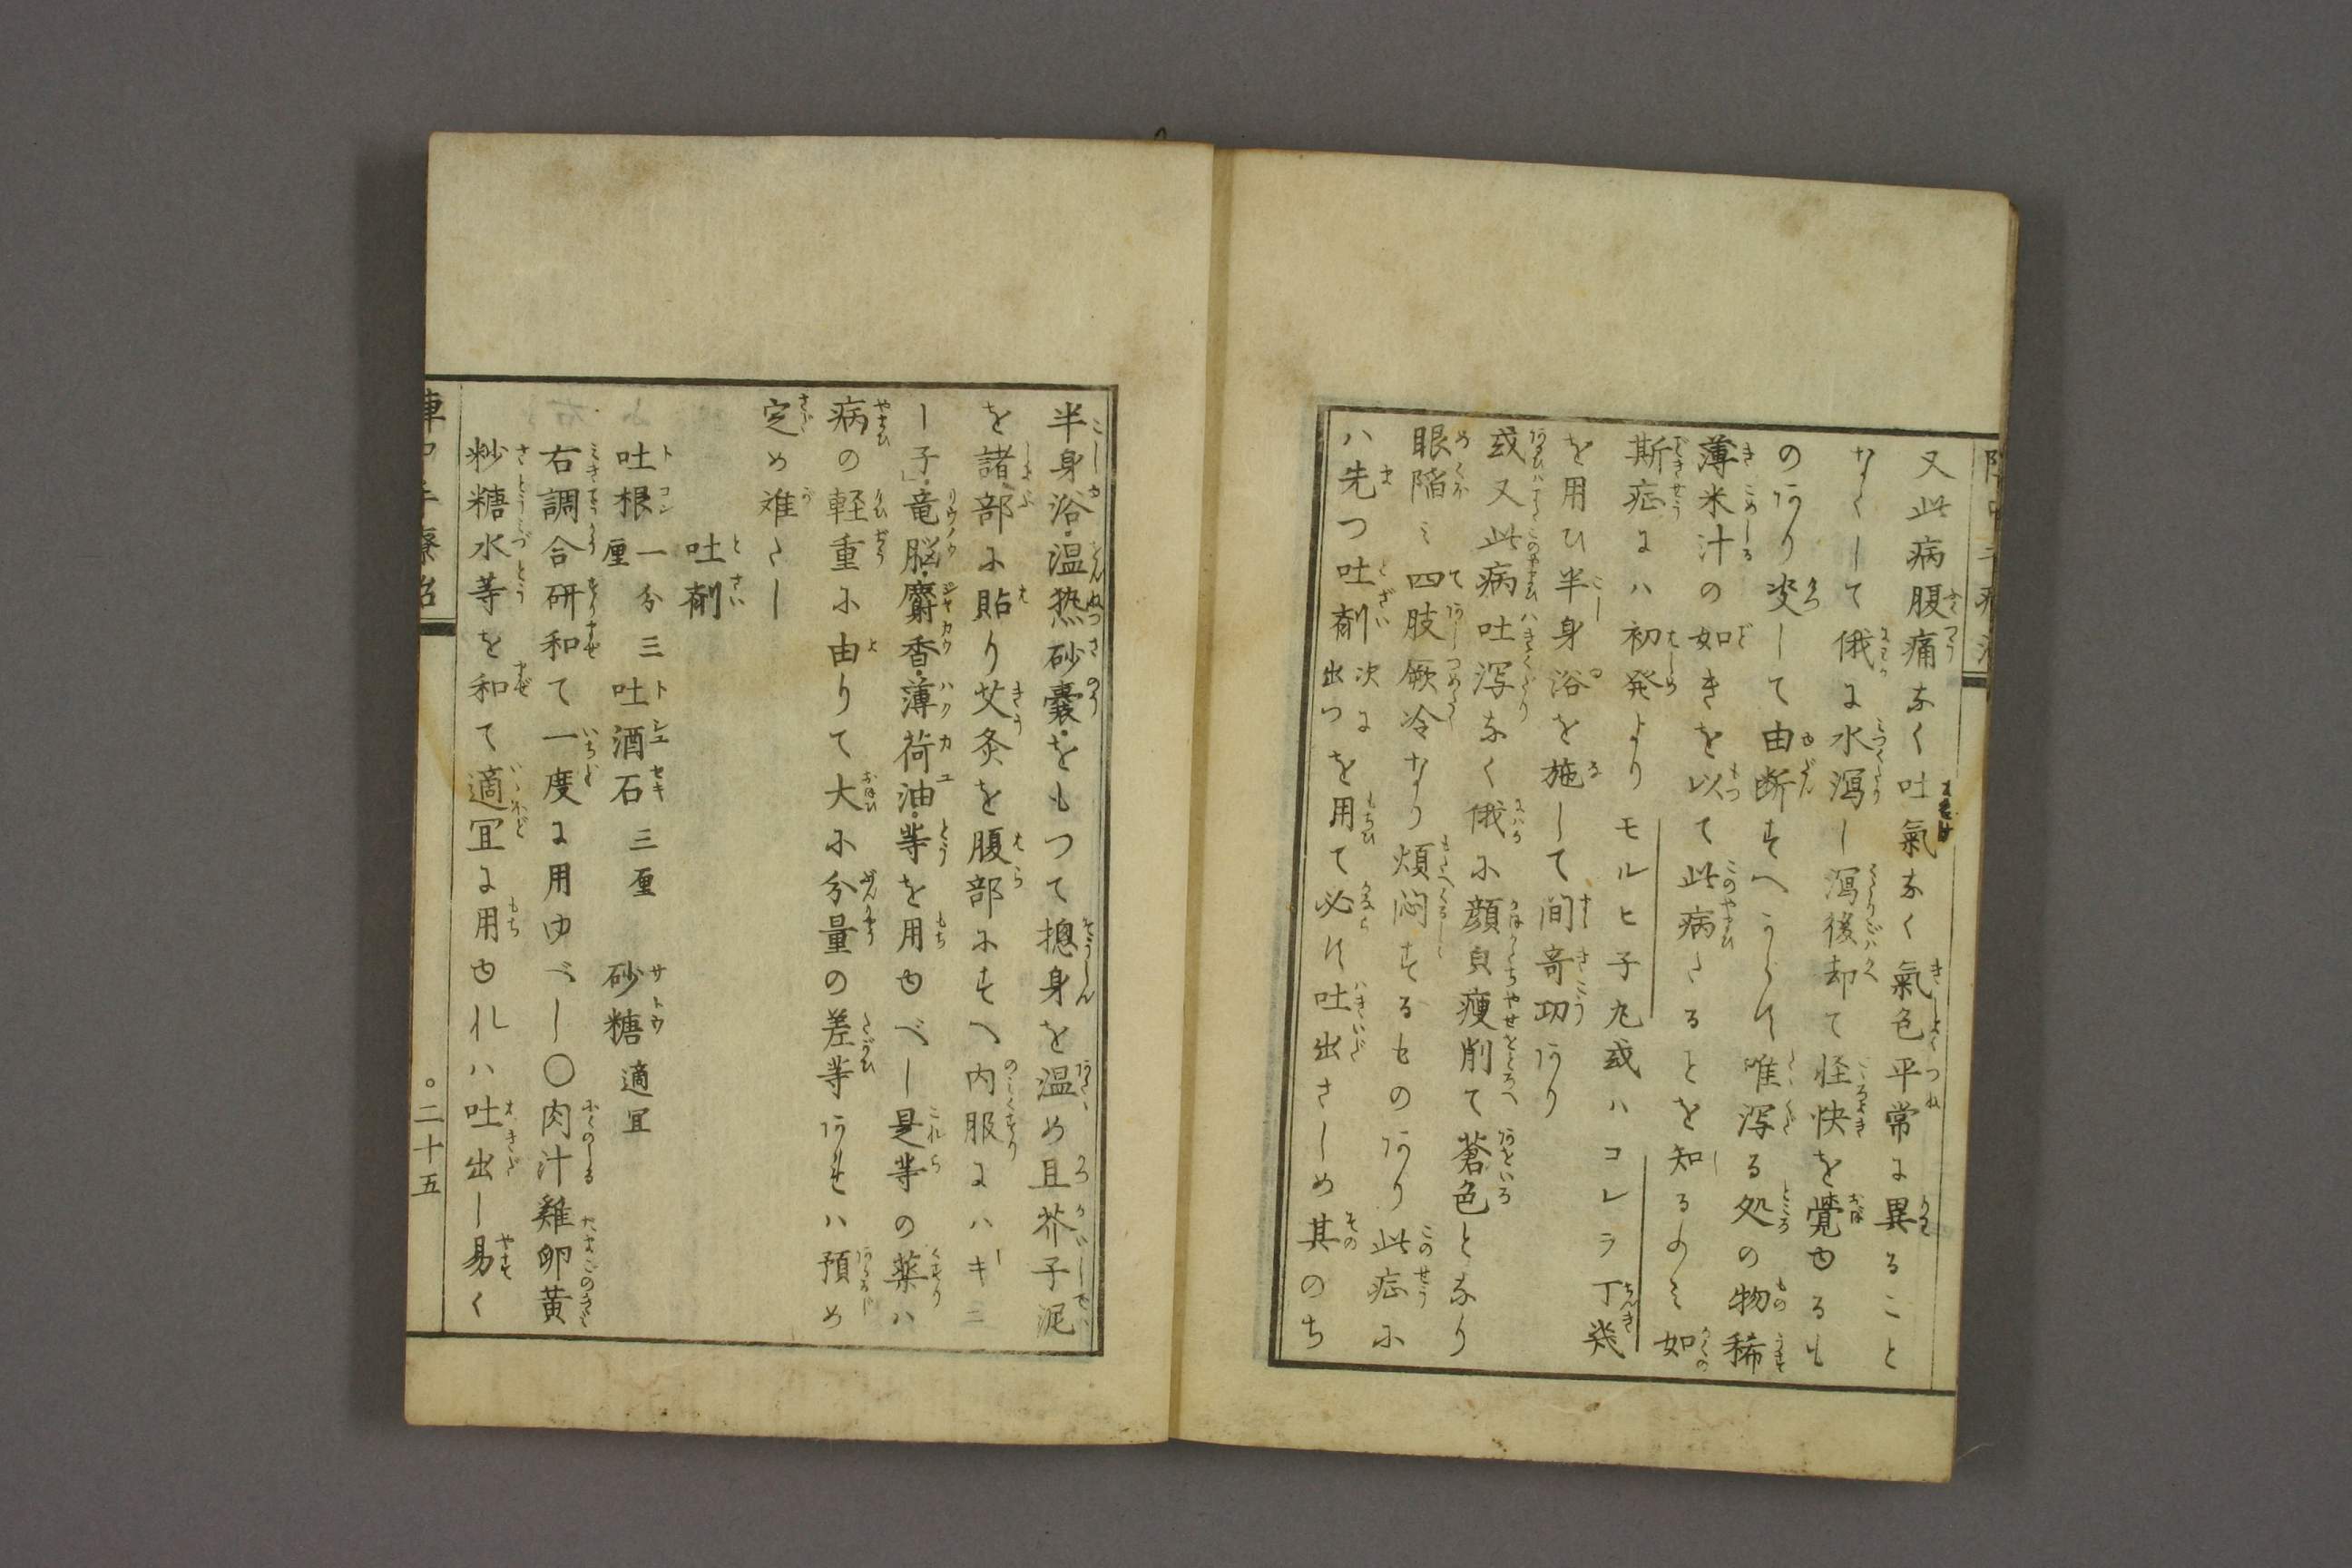 又此病腹痛なく吐氣なく氣色平常に異ること
なくして俄に水瀉し瀉後却て怪快を覺ゆるも
のあり决して由断すへからす唯泻る処の物稀
薄米汁の如きを以て此病たるとを知るのミ如
斯症にハ初発より モルヒ子丸或ハコレラ丁幾
を用ひ半身浴を施して间奇功あり
或又此病吐泻なく俄に顔皃痩削て蒼色となり
眼陥ミ四肢厥冷なり煩悶するものあり此症に
ハ先つ吐剤次に出つを用て必す吐出さしめ其のち
半身浴・温热砂嚢・をもつて摠身を温め且芥子泥
を諸部に貼り艾灸を腹部にすへ内服にハキ三
ー子」・竜脳・麝香・薄荷油・等を用ゆべし是等の薬ハ
病の軽重に由りて大に分量の差等あれハ預め
定め难たし
吐剤
吐根一分三厘 吐酒石三厘 砂糖適冝
右調合研和て一度に用ゆべし〇肉汁雞卵黄
炒糖水等を和て適冝に用ゆれハ吐出し易く
二十五